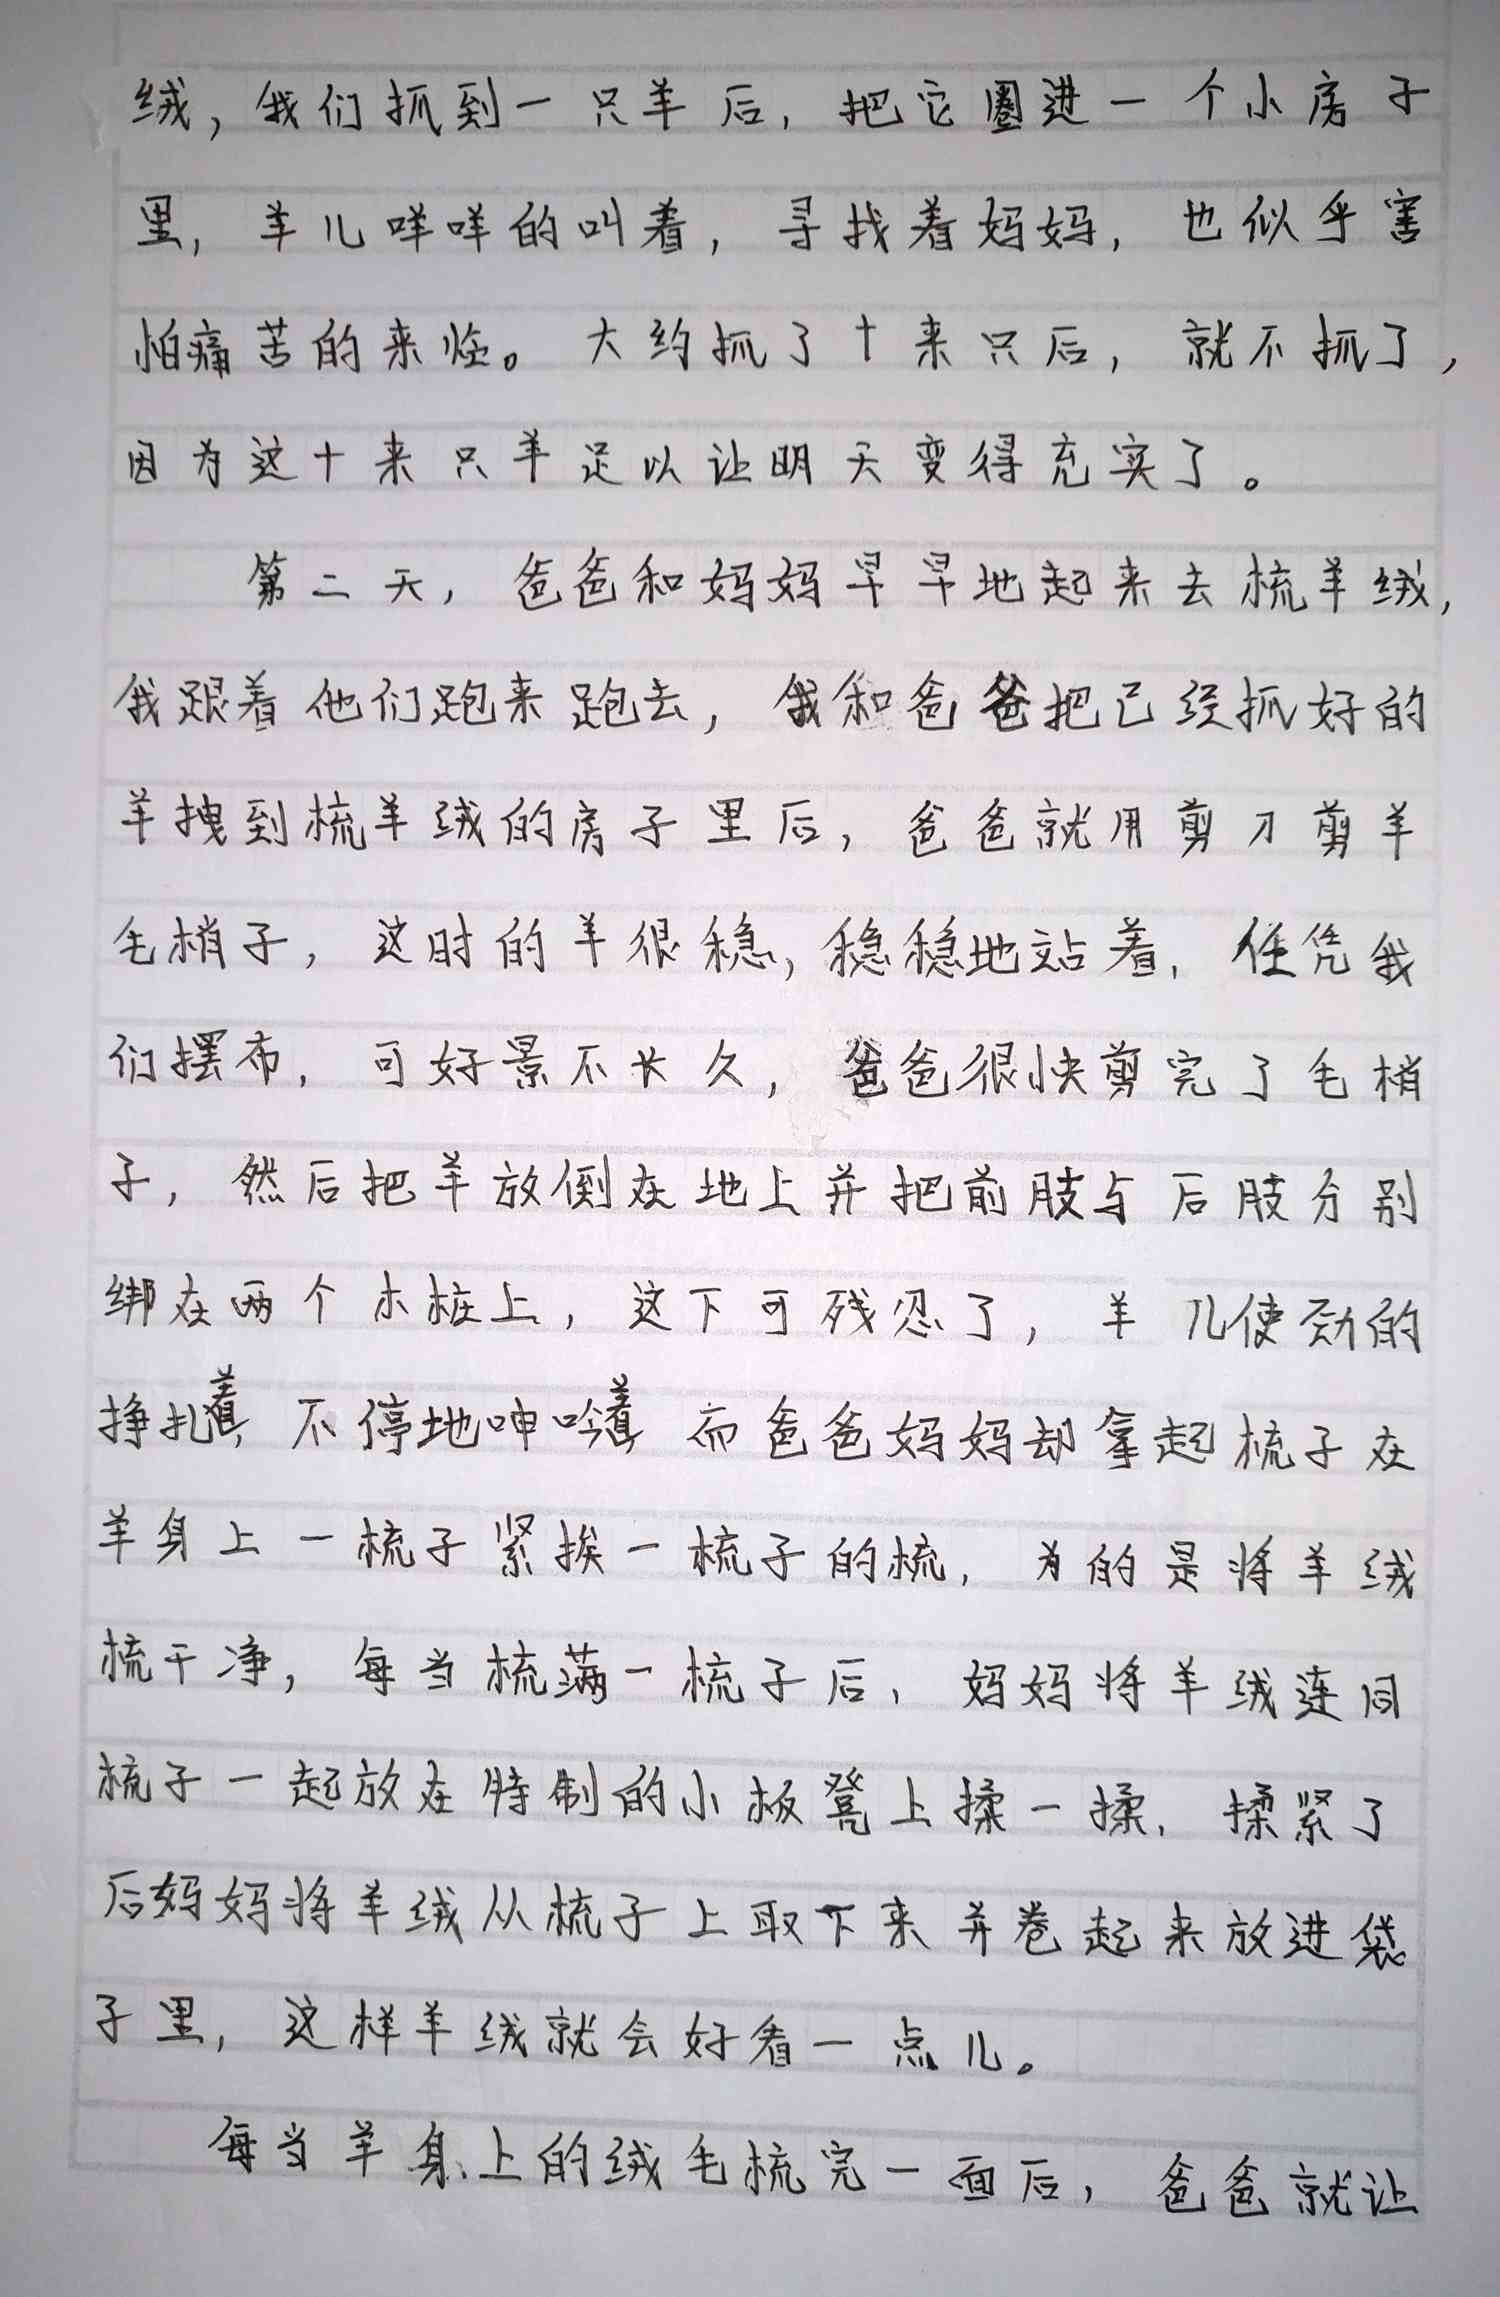 绒，我们抓到一只羊后，把它圈进一个小房子
里，羊儿咩咩的叫着，寻找着妈妈，也似乎害
怕痛苦的来临。大约抓了十来只后，就不抓了，
因为这十来只羊足以让明天变得充实了。
第二天，爸爸和妈妈早早地起来去梳羊绒，
我跟着他们跑来跑去，我和爸爸把已经抓好的
羊拽到梳羊绒的房子里后，爸爸就用剪刀剪羊
毛梢子，这时的羊很稳，稳稳地站着，任凭我
们摆布，可好景不长久，爸爸很快剪完了毛梢
子，然后把羊放倒在地上并把前肢与后肢分别
绑在两个木桩上，这下可残忍了，羊儿使劲的
挣扎着，不停地呻吟着，而爸爸妈妈却拿起梳子在
羊身上一梳子紧挨一梳子的梳，为的是将羊绒
梳干净，每当梳满一梳子后，妈妈将羊绒连同
梳子一起放在特制的小板凳上揉一揉，揉紧了
后妈妈将羊绒从梳子上取下来并卷起来放进袋
子里，这样羊绒就会好看一点儿。
每当羊身上的绒毛梳完一面后，爸爸就让